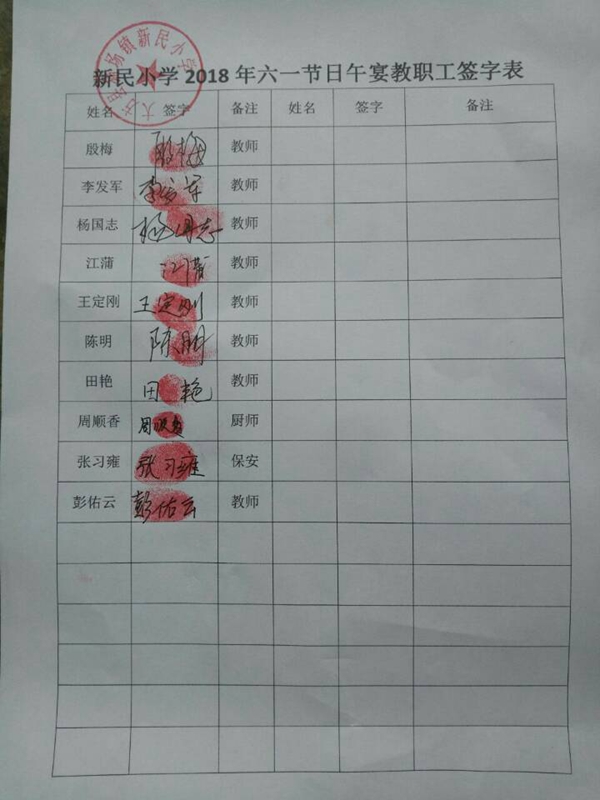 新民小学2018年六一节日午宴教职工签字表
姓名 签字 备注 姓名 签字 备注
殷梅 殷梅 教师
李发军 李发军 教师
杨国志 杨国志 教师
江蒲 江蒲 教师
王定刚 王定刚 教师
陈明 陈明 教师
田艳 田艳 教师
周顺香 周顺香 厨师
张习雍 张习雍 保安
彭佑云 彭佑云 教师